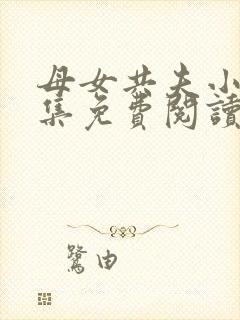 母女共夫小
集免費閱讀
鷺由